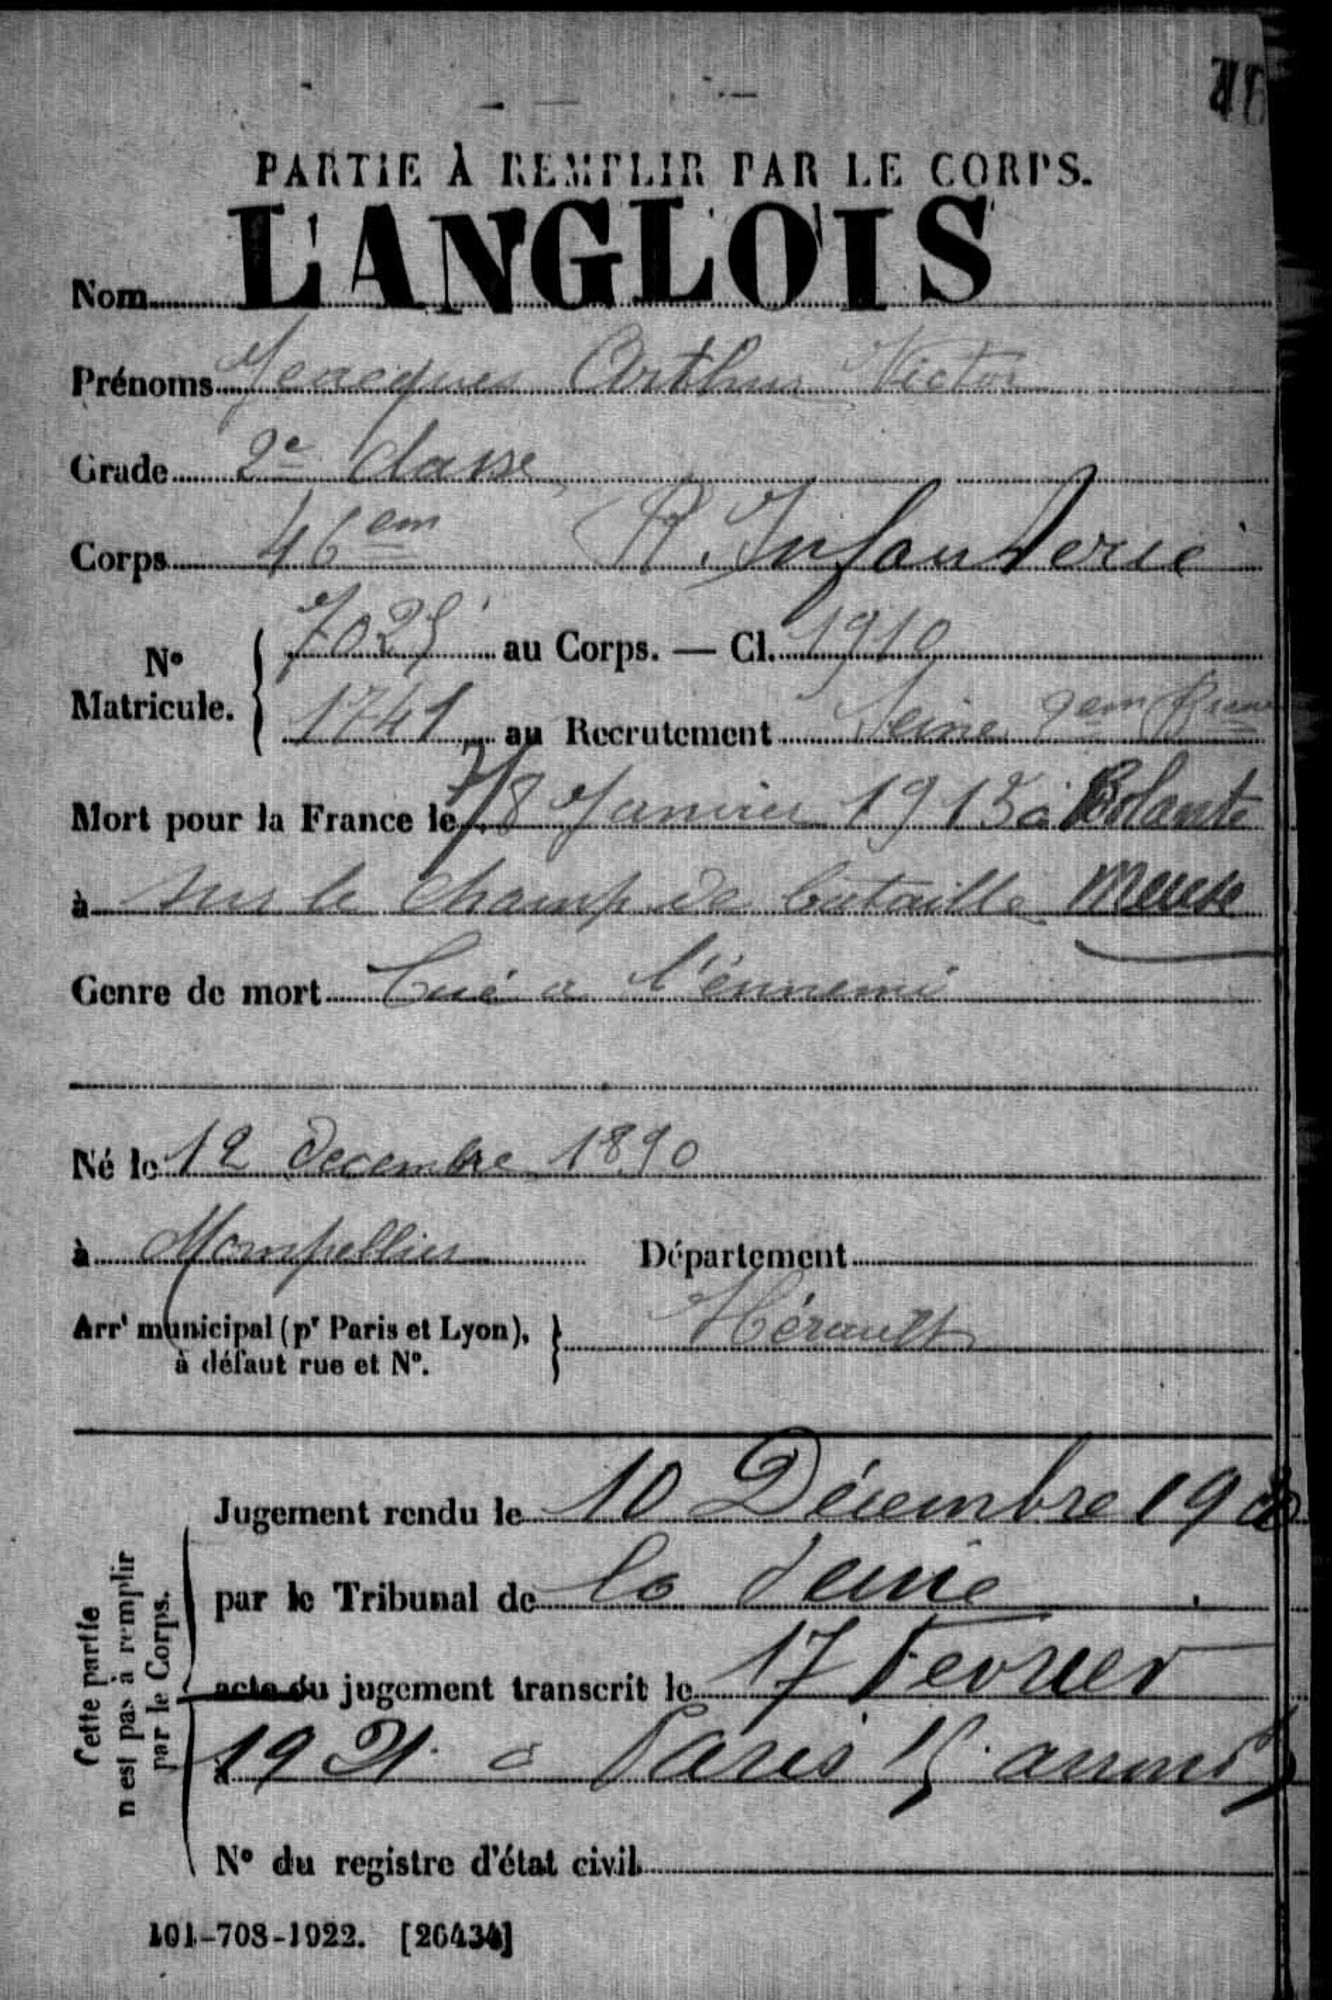 PARTIE À REMPLIR PAR LE CORPS.
Nom LANGLOIS
Prénoms Jacques Arthur Victor
Grade 2e classe
Corps 46em R. Infanterie
No Matricule. { 7025 au Corps. — Cl. 1910
1741 au Recrutement Seine 2em Bureau
Mort pour la France le 7/8 Janvier 1915 à Bolante
à sur le champ de bataille Meuse
Genre de mort Tué a l'énnemi
Né le 12 decembre 1890
à Montpellier Département
Arrt municipal (pr Paris et Lyon), à défaut rue et No. } Hérault
Cette partie n'est pas à remplir par le Corps.
Jugement rendu le 10 Décembre 19
par le Tribunal de la Seine
acte du jugement transcrit le 17 Fevrier
1921 à Paris 15 arrondt
No du registre d'état civil
101-708-1922. [26434]